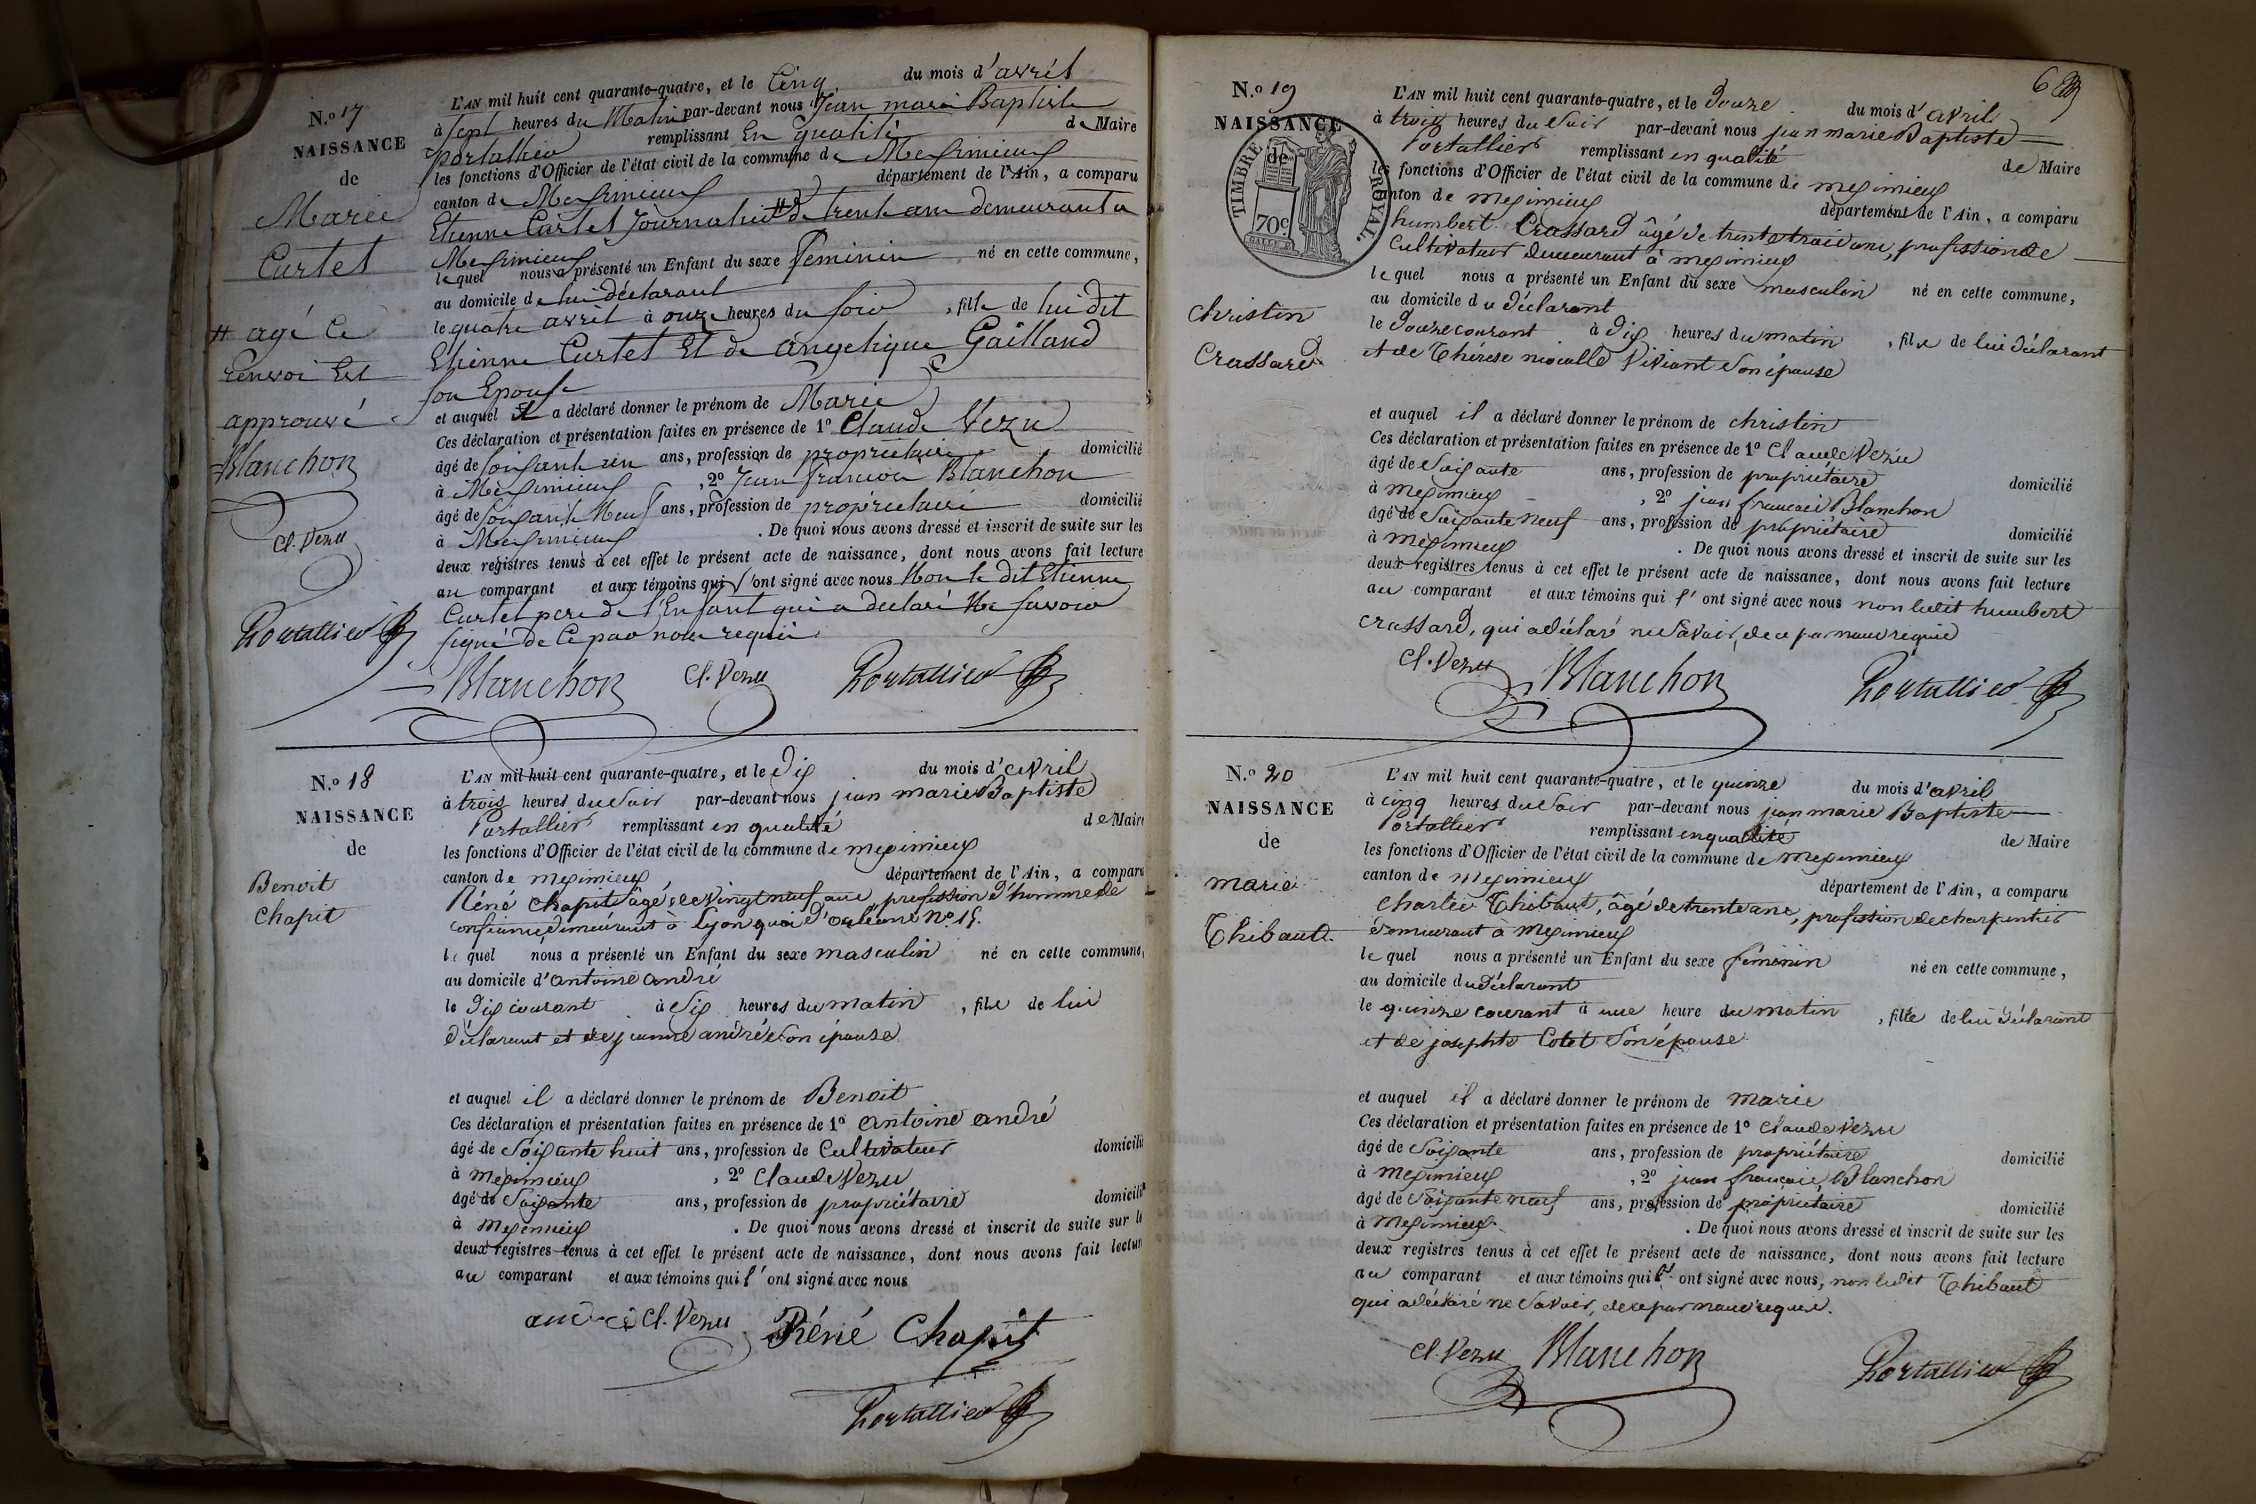 N.o 17
NAISSANCE
de
Marie
Curtet
# agé Ce
renvoi Est
approuvé
Blanchon
Cl. Vezu
Portallier
L'AN mil huit cent quarante-quatre, et le Cinq du mois d'avril
à Sept heures du Matin par-devant nous Jean marie Baptiste
portallier remplissant En qualité de Maire
les fonctions d'Officier de l'état civil de la commune de Meximieux
canton de Meximieux département de l'Ain, a comparu
Etienne Curtet Journalier # de trente ans demeurant a
Meximieux
lequel nous a présenté un Enfant du sexe feminin né en cette commune,
au domicile de lui déclarant
le quatre avril à onze heures du soir, fille de lui dit
Etienne Curtet Et de angelique Gailland
son Epouse
et auquel il a déclaré donner le prénom de Marie
Ces déclaration et présentation faites en présence de 1º Claude Vezu
âgé de soixante un ans, profession de propriétaire domicilié
à Meximieux, 2º Jean francois Blanchon
âgé de soixante Neuf ans, profession de propriétaire domicilié
à Meximieux. De quoi nous avons dressé et inscrit de suite sur les
deux registres tenus à cet effet le présent acte de naissance, dont nous avons fait lecture
au comparant et aux témoins qui l'ont signé avec nous Non le dit Etienne
Curtet pere de l'Enfant qui a declaré Ne savoir
signé de Ce par nous requis
Blanchon Cl. Vezu Portallier
N.o 18
NAISSANCE
de
Benoit
Chapit
L'AN mil huit cent quarante-quatre, et le dix du mois d'avril
à trois heures du soir par-devant nous jean marie Baptiste
Portallier remplissant en qualité de Maire
les fonctions d'Officier de l'état civil de la commune de meximieux
canton de meximieux département de l'Ain, a comparu
Réné Chapit âgé de vingt neuf ans, profession d'homme de
confiance, demeurant à Lyon quai d'orléans nº 15.
le quel nous a présenté un Enfant du sexe masculin né en cette commune,
au domicile d'antoine andré
le dix courant à six heures du matin, fils de lui
déclarant et de jeanne andré son épouse
et auquel il a déclaré donner le prénom de Benoit
Ces déclaration et présentation faites en présence de 1º antoine andré
âgé de soixante huit ans, profession de cultivateur domicilié
à meximieux, 2º Claude Vezu
âgé de soixante ans, profession de propriétaire domicilié
à meximieux. De quoi nous avons dressé et inscrit de suite sur le
deux registres tenus à cet effet le présent acte de naissance, dont nous avons fait lecture
au comparant et aux témoins qui l'ont signé avec nous
andré Cl. Vezu Réné Chapit
Portallier
6
N.o 19
NAISSANCE
de
TIMBRE ROYAL.
70c
christin
Crassard
L'AN mil huit cent quarante-quatre, et le douze du mois d'avril
à trois heures du soir par-devant nous jean marie Baptiste
Portallier remplissant en qualité de Maire
les fonctions d'Officier de l'état civil de la commune de meximieux
canton de meximieux département de l'Ain, a comparu
humbert Crassard âgé de trente trois ans, profession de
cultivateur demeurant à meximieux
le quel nous a présenté un Enfant du sexe masculin né en cette commune,
au domicile du déclarant
le douze courant à dix heures du matin, fils de lui déclarant
et de Thérese Viviant son épouse
et auquel il a déclaré donner le prénom de christin
Ces déclaration et présentation faites en présence de 1º Claude Vezu
âgé de soixante ans, profession de propriétaire domicilié
à meximieux, 2º jean francois Blanchon
âgé de soixante neuf ans, profession de propriétaire domicilié
à meximieux. De quoi nous avons dressé et inscrit de suite sur les
deux registres tenus à cet effet le présent acte de naissance, dont nous avons fait lecture
au comparant et aux témoins qui l'ont signé avec nous non ledit humbert
crassard, qui a déclaré ne savoir, de ce par nous requis
Cl. Vezu Blanchon Portallier
N.o 20
NAISSANCE
de
marie
Thibaut
L'AN mil huit cent quarante-quatre, et le quinze du mois d'avril
à cinq heures du soir par-devant nous jean marie Baptiste
Portallier remplissant en qualité de Maire
les fonctions d'Officier de l'état civil de la commune de meximieux
canton de meximieux département de l'Ain, a comparu
charles Thibaut, âgé de trente ans, profession de charpentier
demeurant à meximieux
le quel nous a présenté un Enfant du sexe féminin né en cette commune,
au domicile du déclarant
le quinze courant à une heure du matin, fille de lui déclarant
et de josephte Cotet son épouse
et auquel il a déclaré donner le prénom de marie
Ces déclaration et présentation faites en présence de 1º Claude Vezu
âgé de soixante ans, profession de propriétaire domicilié
à meximieux, 2º jean francois Blanchon
âgé de soixante neuf ans, profession de propriétaire domicilié
à meximieux. De quoi nous avons dressé et inscrit de suite sur les
deux registres tenus à cet effet le présent acte de naissance, dont nous avons fait lecture
au comparant et aux témoins qui l'ont signé avec nous, non ledit Thibaut
qui a déclaré ne savoir, de ce par nous requis.
Cl. Vezu Blanchon Portallier